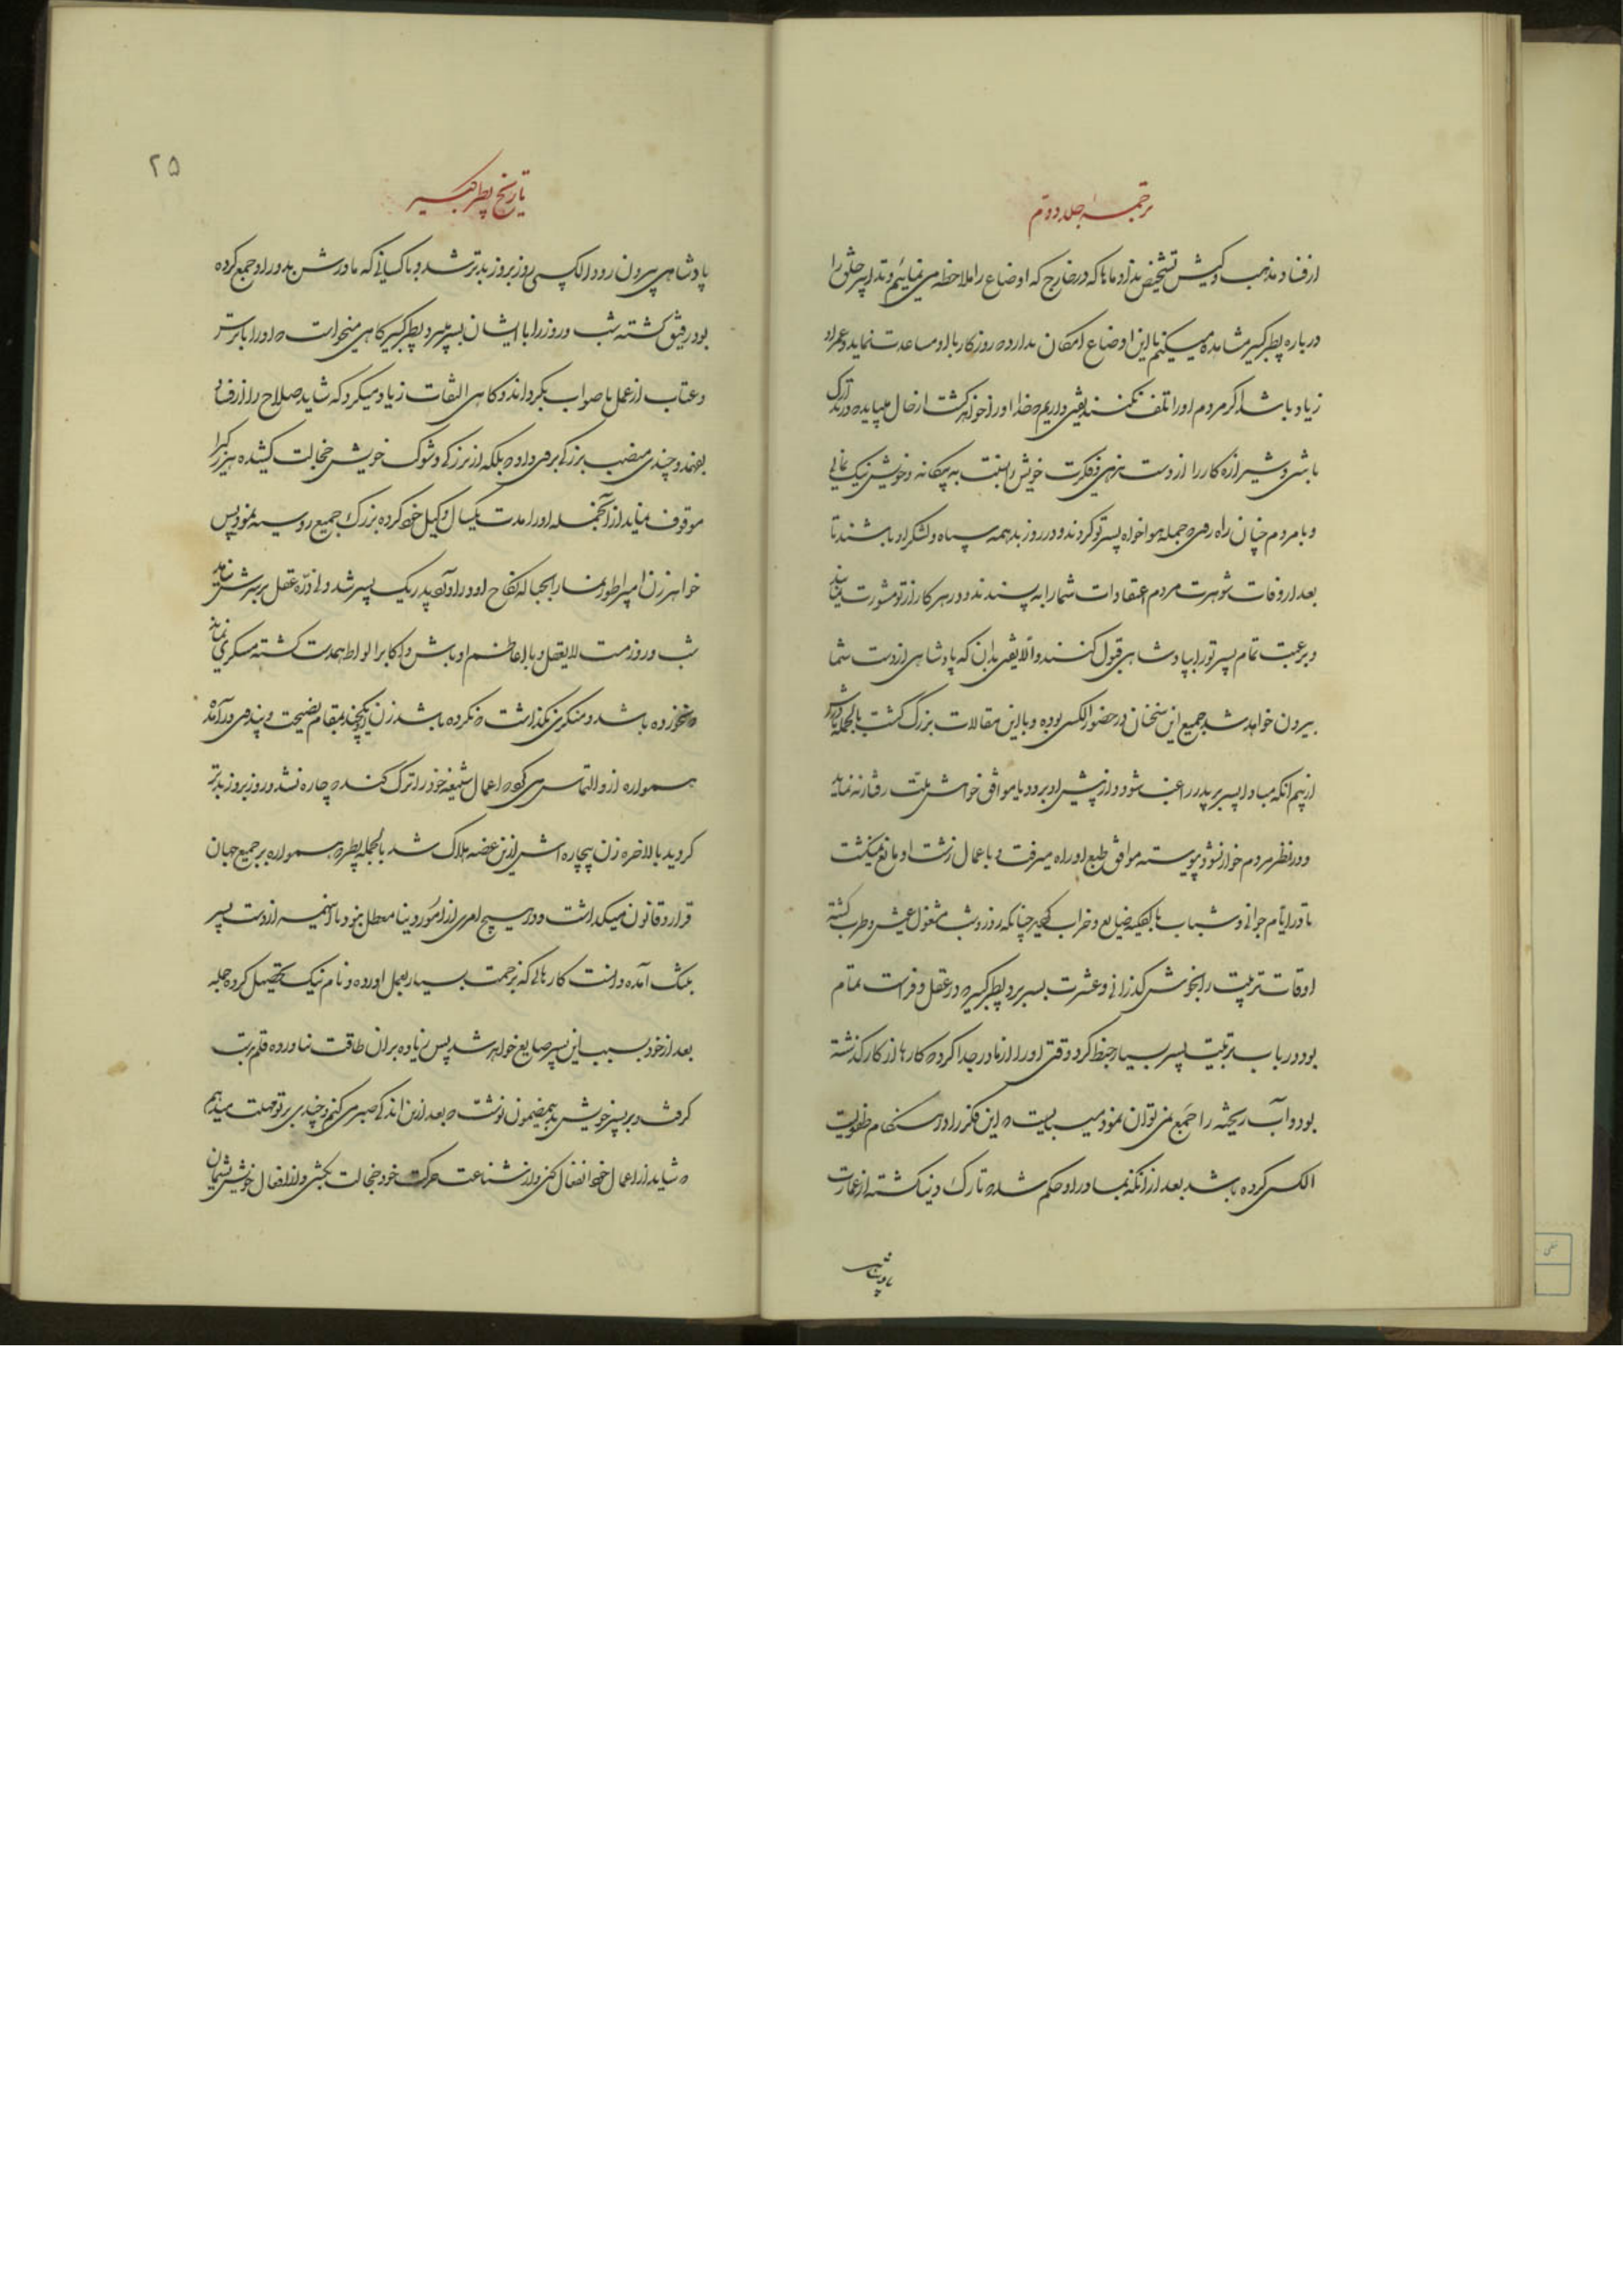 ترجمهٔ جلد دویم
از فساد مذهب و کیش تشخیص بدارد ماها که در خارج که اوضاع را ملاحظه می نمائیم و تدابیر خلق را
درباره پطر کبیر مشاهده میکنیم با این اوضاع امکان ندارد که روزگار با او مساعدت نماید و عمر او
زیاد باشد اگر مردم او را تلف نکنند یقین داریم که خدا او را خواهد کشت از حال میباید که در تدارک
باشی و شیرازه کار را از دست ندهی و فکرت خویش را به یکانه و خویش نیک نمائی
و با مردم چنان راه روی که جمله هواخواه پسر تو گردند و در روز بد همه سپاه و لشکر او باشند تا
بعد از وفات شوهرت مردم اعتقادات شما را به پسندند و در هر کار از تو مشورت نمایند
و برغبت تمام پسر تو را بپادشاهی قبول کنند و الا یقین بدان که پادشاهی از دست شما
بیرون خواهد شد جمیع این سخنان در حضور الکسی بوده و با این مقالات بزرگ گشت بالجمله مادرش
از بیم آنکه مبادا پسر بر پدر راغب شود و از پیش او برود یا موافق خواهش ملت رفتار ننماید
و در نظر مردم خوار نشود پیوسته موافق طبع او راه میرفت و با عمال زشت او مانع نمیگشت
تا در ایام جوانی و شباب بالکلیه ضایع و خراب گردید چنانکه روز و شب مشغول عیش و طرب گشته
اوقات تربیت را بخوش گذرانی و عشرت بسر برد پطر کبیر که در عقل و فراست تمام
بود در باب تربیت پسر بسیار خبط کرد وقتی او را از مادر جدا کرد که کارها از کار گذشته
بود و آب ریخته را جمع نمی توان نمود میبایست که این فکر را در هنگام طفولیت
الکسی کرده باشد بعد از آنکه بمادر او حکم شد که تارک دنیا گشته از عمارت
پادشاهی
تاریخ پطر کبیر
۲۵
پادشاهی بیرون رود الکسی روز بروز بدتر شد و با کسانی که مادرش بدور او جمع کرده
بود رفیق گشته شب و روز را با ایشان بسر میبرد پطر کبیر گاهی میخواست که او را با ترس
و عتاب از عمل ناصواب بگرداند و گاهی التفات زیاد میکرد که شاید صلاح را از فساد
بفهمد و چندی منصب بزرگی بر وی داد که بلکه از بزرگی و شوکت خویش خجالت کشیده هرزگی را
موقوف نماید از آنجمله او را مدت یکسال وکیل خود کرده بزرگ جمیع روسیه نمود پس
خواهر زن امپراطور نمسا را بحباله نکاح او در آورد پدر یک پسر شد ولی ذره عقل بر سرش نیامد
شب و روز مست لایعقل و با اعاظم اوباش و اکابر الواط همدست گشته مسکری نمانده
که نخورده باشد و منکری نگذاشت که نکرده باشد زن او یکچند بمقام نصیحت و پندی در آمده
همواره از او التماس می کرد که اعمال شنیعه خود را ترک کند که چاره نشد و روز بروز بدتر
گردید بالاخره زن بیچاره اش از این غصه هلاک شد بالجمله پطر که همواره بر جمیع جهان
قرار و قانون میگذاشت و در هیچ امری از امور دنیا معطل نبود با اینهمه از دست پسر
بتنگ آمده دانست کارهائی که بزحمت بسیار بعمل آورده و نام نیک تحصیل کرده جمله
بعد از خود بسبب این پسر ضایع خواهد شد پس زیاده بر آن طاقت نیاورده قلم بدست
گرفت و بر پسر خویش بدینمضمون نوشت که بعد از این اندکی صبر می کنم و چندی بر تو مهلت میدهم
که شاید از اعمال خود انفعال کنی و از شناعت حرکت خود خجالت بکشی و از افعال خویش پشیمان